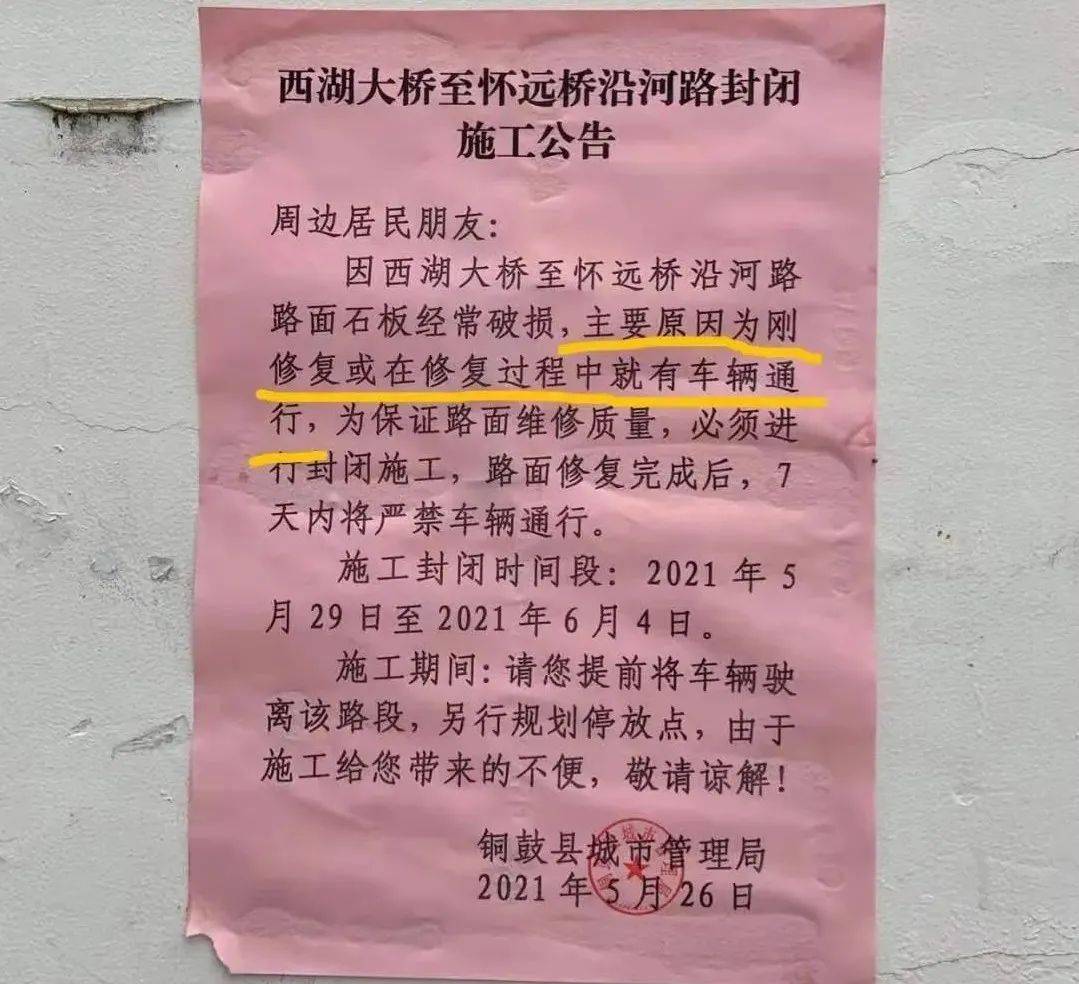 西湖大桥至怀远桥沿河路封闭
施工公告
周边居民朋友：
因西湖大桥至怀远桥沿河路
路面石板经常破损，主要原因为刚
修复或在修复过程中就有车辆通
行，为保证路面维修质量，必须进
行封闭施工，路面修复完成后，7
天内将严禁车辆通行。
施工封闭时间段：2021年5
月29日至2021年6月4日。
施工期间：请您提前将车辆驶
离该路段，另行规划停放点，由于
施工给您带来的不便，敬请谅解！
铜鼓县城市管理局
2021年5月26日